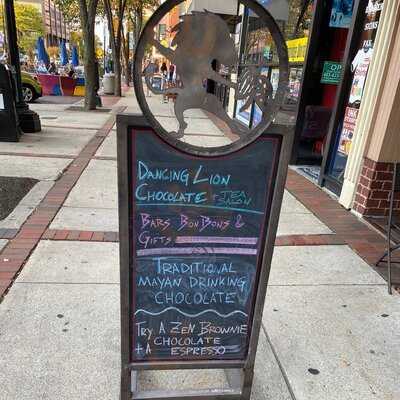 DANCING LION
CHOCOLATE + TEA SALON
BARS BONBONS &
GIFTS
TRADITIONAL
MAYAN DRINKING
CHOCOLATE
TRY A ZEN BROWNIE
CHOCOLATE
+ A ESPRESSO
OPEN